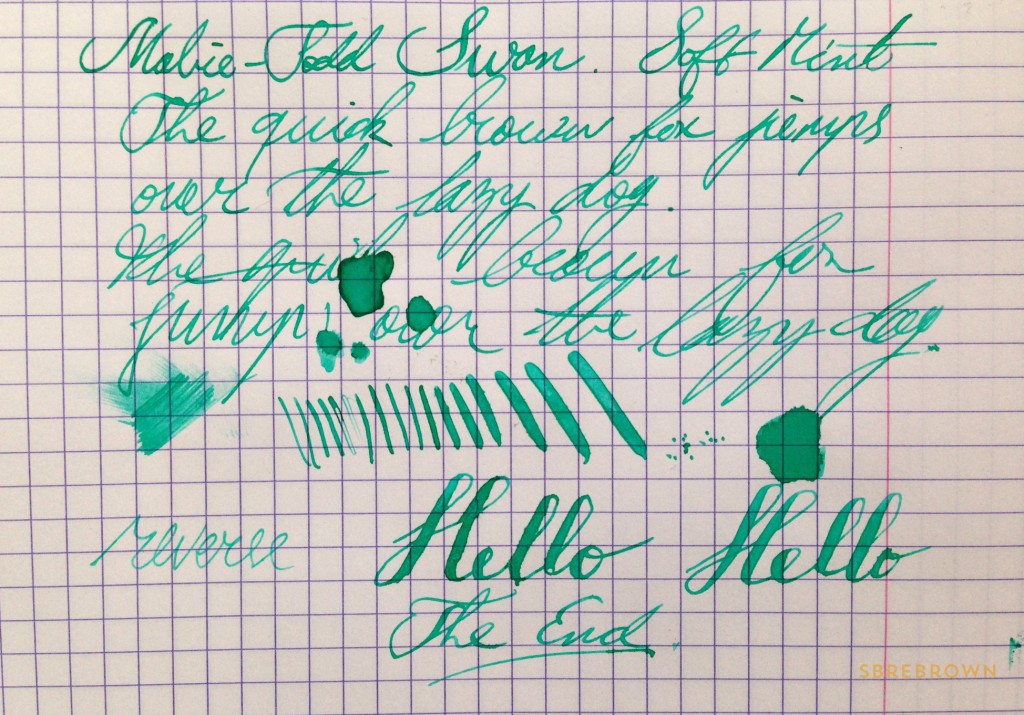 Mabie-Todd Swan. Soft Mint
The quick brown fox jumps
over the lazy dog.
The quick brown fox
jumps over the lazy dog.
reverse Hello Hello
The End.
SBREBROWN